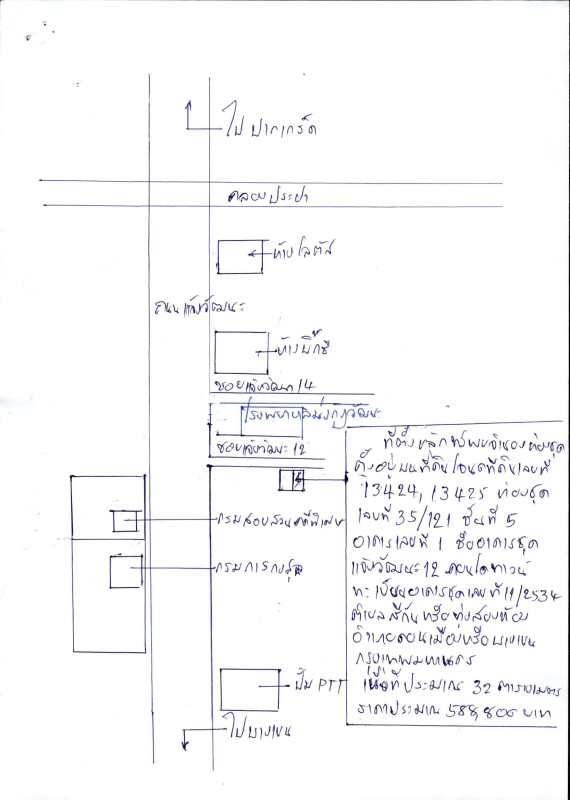 ไป ปากเกร็ด
คลองประปา
ห้างโลตัส
ถนนแจ้งวัฒนะ
ห้างบิ๊กซี
ซอยแจ้งวัฒนะ 14
โรงพยาบาลมงกุฎวัฒนะ
ซอยแจ้งวัฒนะ 12
ที่ตั้งหลักทรัพย์จำนองห้องชุด
ตั้งอยู่บนที่ดินโฉนดที่ดินเลขที่
13424, 13425 ห้องชุด
เลขที่ 35/121 ชั้นที่ 5
อาคารเลขที่ 1 ชื่ออาคารชุด
แจ้งวัฒนะ 12 คอนโดทาวน์
ทะเบียนอาคารชุดเลขที่ 11/2534
ตำบลสีกันหรือทุ่งสองห้อง
อำเภอดอนเมืองหรือบางเขน
กรุงเทพมหานคร
เนื้อที่ประมาณ 32 ตารางเมตร
ราคาประมาณ 588,806 บาท
กรมสอบสวนคดีพิเศษ
กรมการกงสุล
ปั๊ม PTT
ไปบางเขน